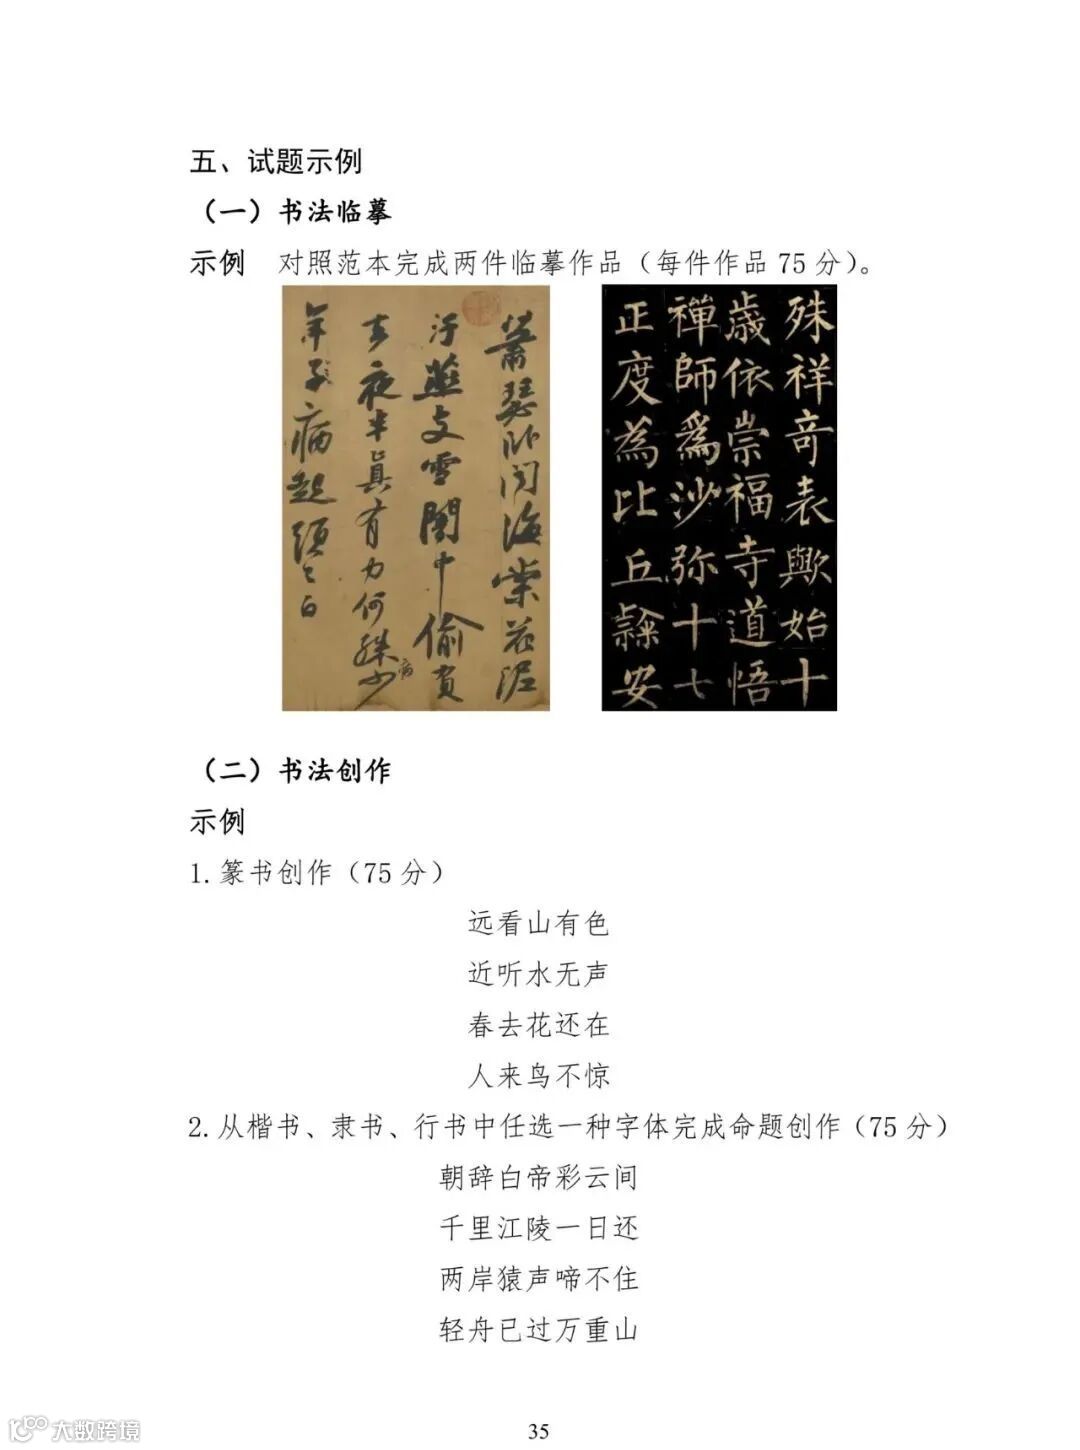 五、试题示例
（一）书法临摹
示例 对照范本完成两件临摹作品（每件作品75分）。
萧瑟卧闻海棠花泥
汙燕支雪闇中偷負
去夜半真有力何殊少
病
年子病起頭白
殊祥奇表歟始十
歳依崇福寺道悟
禅師爲沙弥十七
正度為比丘隷安
（二）书法创作
示例
1.篆书创作（75分）
远看山有色
近听水无声
春去花还在
人来鸟不惊
2.从楷书、隶书、行书中任选一种字体完成命题创作（75分）
朝辞白帝彩云间
千里江陵一日还
两岸猿声啼不住
轻舟已过万重山
35
大数跨境